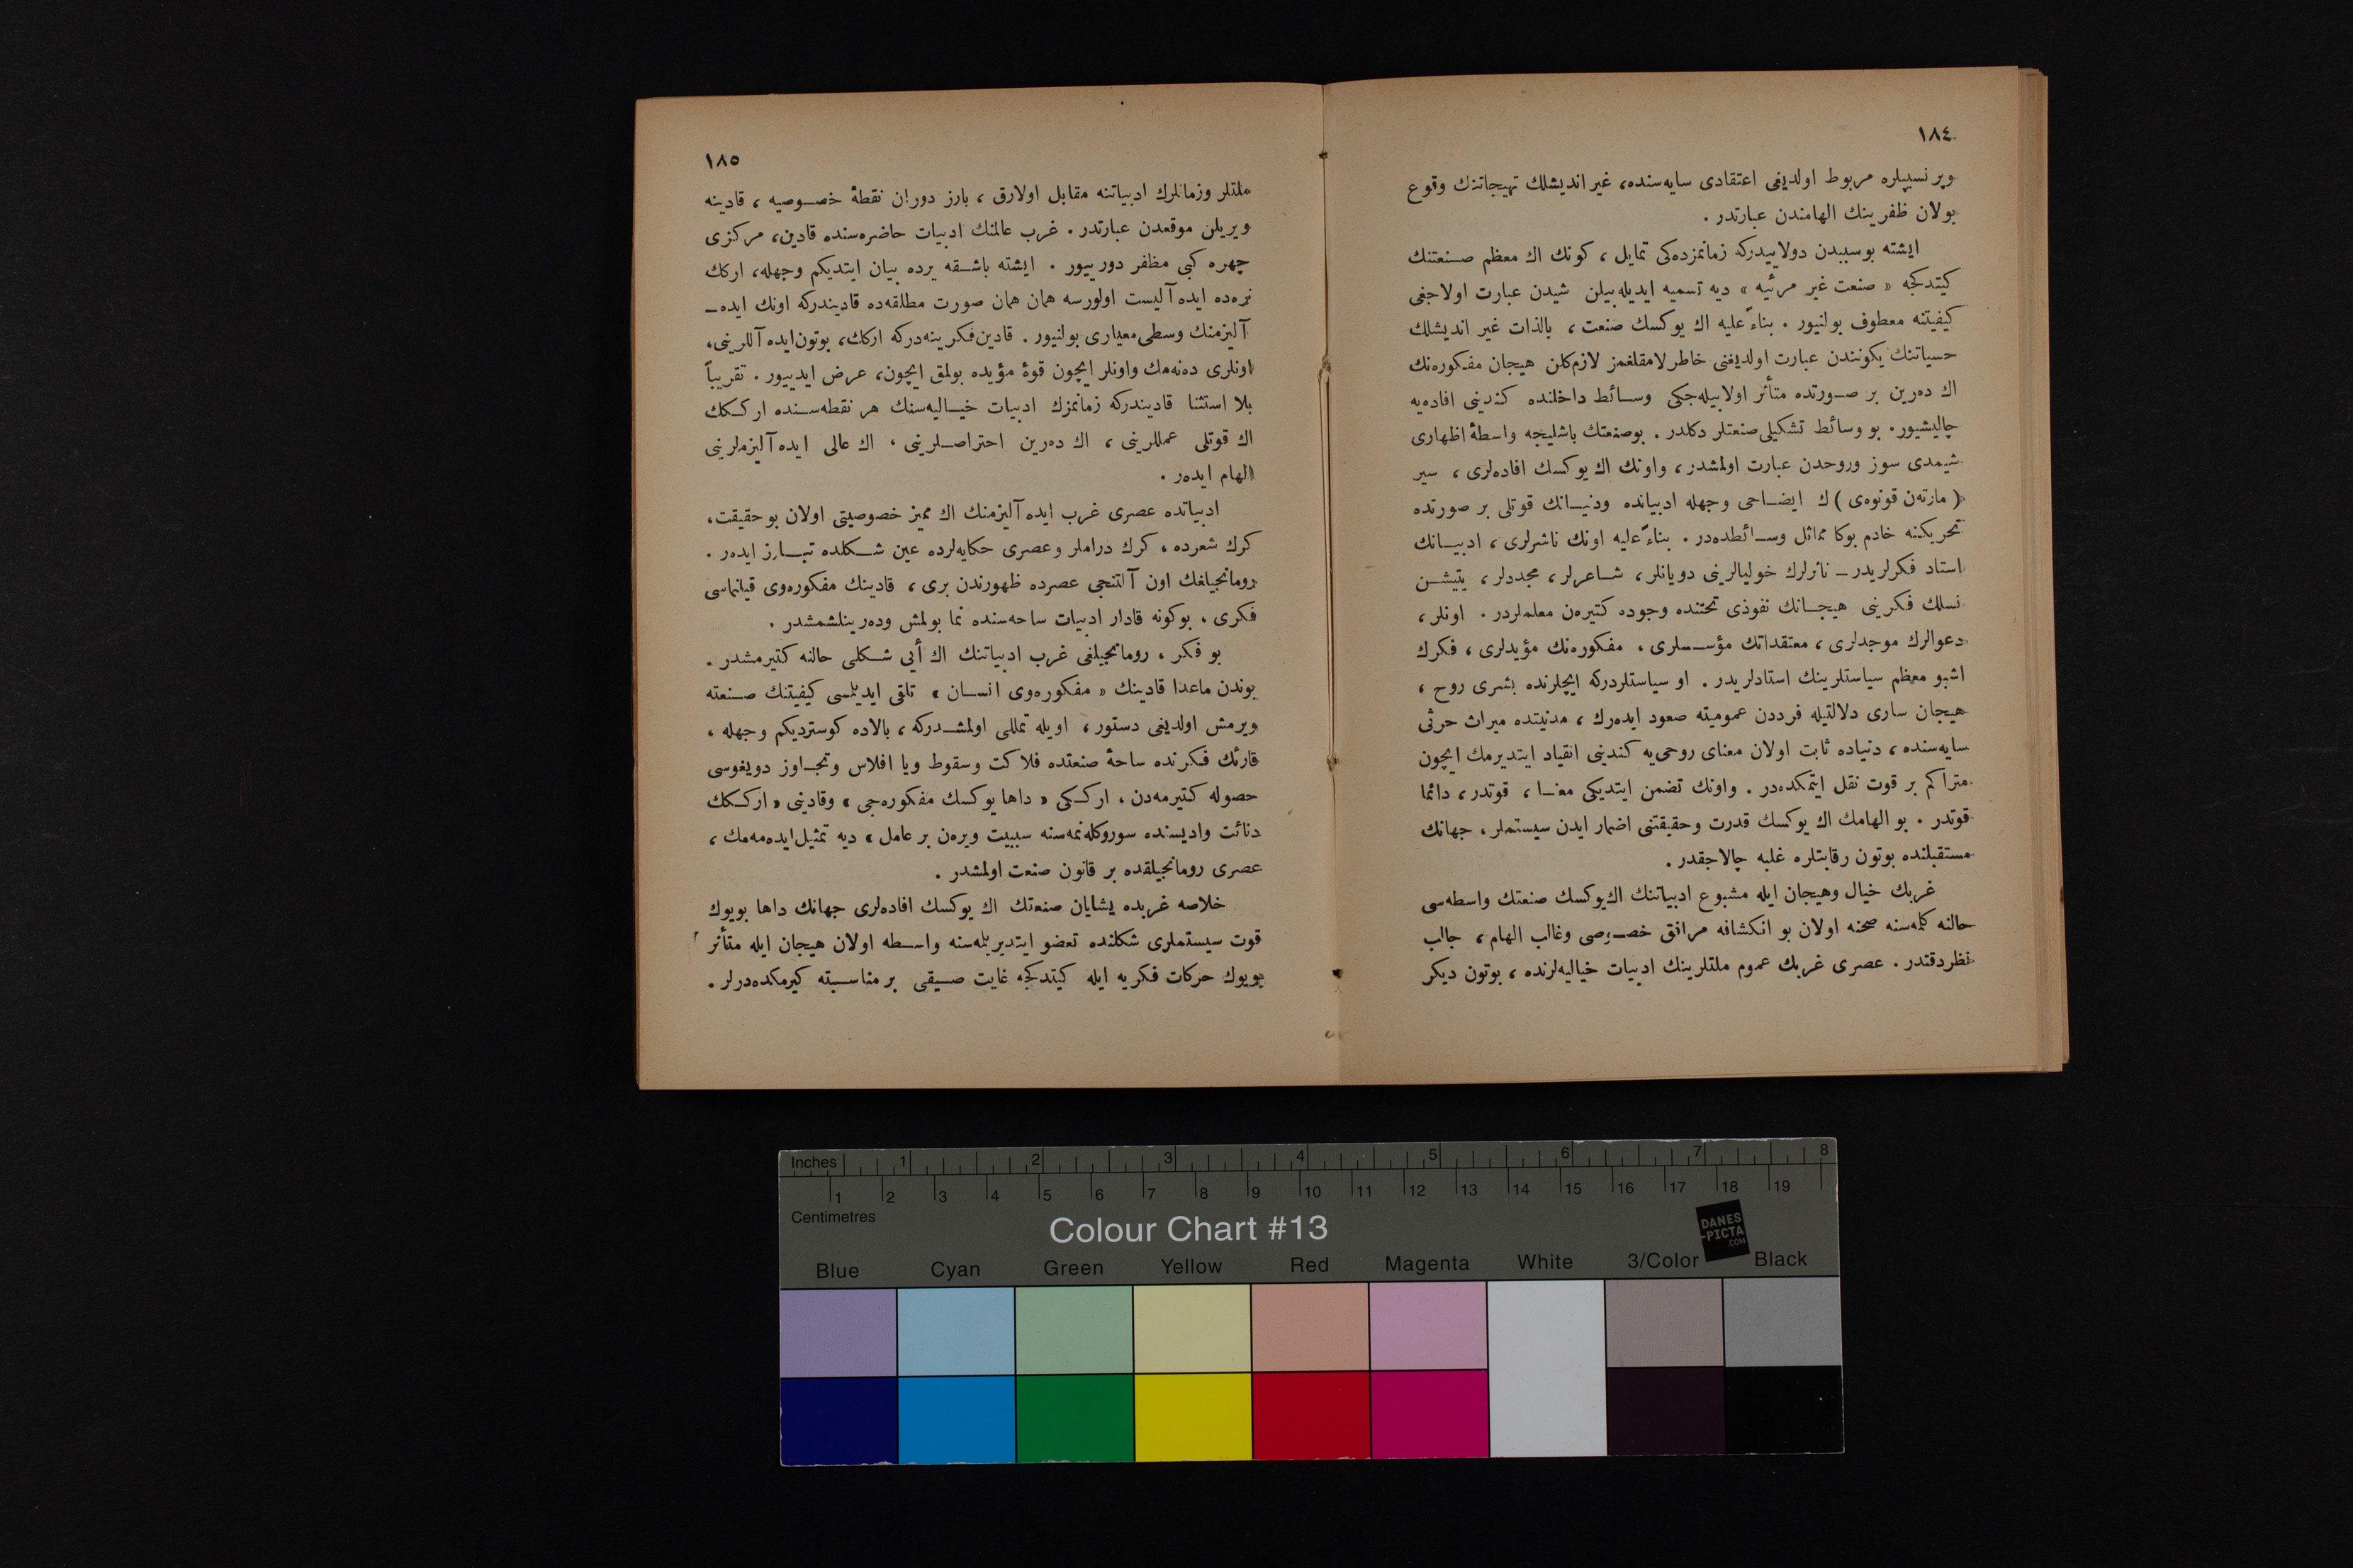 ١٨٤
وپرنسیپلره مربوط اولدیغی اعتقادی سایه‌سنده، غیر اندیشلك تهیجاتنك وقوع
بولان ظفرینك الهامندن عبارتدر .
ایشته بوسببدن دولاییدركه زمانمزده‌كی تمایل ، كونك اك معظم صنعتنك
كیتدكجه « صنعت غیر مرئیه » دیه تسمیه ایدیله‌بیلن شیدن عبارت اولاجغی
كیفیتنه معطوف بولنیور . بناءً علیه اك یوكسك صنعت ، بالذات غیر اندیشلك
حسیاتنك یكونندن عبارت اولدیغنی خاطرلامقلغمز لازمكلن هیجان مفكوره‌نك
اك ده‌رین بر صورتده متأثر اولابیله‌جكی وسائط داخلنده كندینی افاده‌یه
چالیشیور. بو وسائط تشكیلی صنعتلر دكلدر . بوصنعتك باشلیجه واسطهٔ اظهاری
شیمدی سوز وروحدن عبارت اولمشدر ، واونك اك یوكسك افاده‌لری ، سیر
( مارتەن قونوەی ) ك ایضاحی وجهله ادبیاتده ودنیانك قوتلی بر صورتده
تحریكنه خادم بوكا مماثل وسائطده‌در . بناءً علیه اونك ناشرلری ، ادبیاتك
استاد فكرلریدر ـ ناثرلرك خولیالرینی دویانلر ، شاعرلر ، مجددلر ، یتیشن
نسلك فكرینی هیجانك نفوذی تحتنده وجوده كتیره‌ن معلملردر . اونلر ،
دعوالرك موجدلری ، معتقداتك مؤسسلری ، مفكوره‌نك مؤیدلری ، فكرك
اشبو معظم سیاستلرینك استادلریدر . او سیاستلردركه ایچلرنده بشری روح ،
هیجان ساری دلالتیله فرددن عمومیته صعود ایده‌رك ، مدنیتده میراث حرثی
سایه‌سنده ، دنیاده ثابت اولان معنای روحی‌یه كندینی انقیاد ایتدیرمك ایچون
متراكم بر قوت نقل ایتمكده‌در . واونك تضمن ایتدیكی معنا ، قوتدر ، دائما
قوتدر . بو الهامك اك یوكسك قدرت وحقیقتنی اضمار ایدن سیستملر ، جهانك
مستقبلنده بوتون رقابتلره غلبه چالاجقدر .
غربك خیال وهیجان ایله مشبوع ادبیاتنك اك‌یوكسك صنعتك واسطه‌سی
حالنه كله‌سنه صحنه اولان بو انكشافه مرافق خصوصی وغالب الهام ، جالب
نظردقتدر . عصری غربك عموم ملتلرینك ادبیات خیالیه‌لرنده ، بوتون دیكر
١٨٥
ملتلر وزمانلرك ادبیاتنه مقابل اولارق ، بارز دوران نقطهٔ خصوصیه ، قادینه
ویریلن موقعدن عبارتدر . غرب عالمنك ادبیات حاضره‌سنده قادین، مركزی
چهره كبی مظفر دورییور . ایشته باشقه یرده بیان ایتدیكم وجهله، اركك
نره‌ده ایده‌آلیست اولورسه همان همان صورت مطلقه‌ده قادیندركه اونك ایده‌ـ
آلیزمنك وسطی‌معیاری بولنیور . قادین‌فكرینه‌دركه اركك، بوتون‌ایده‌آللرینی،
اونلری ده‌نه‌مك واونلر ایچون قوهٔ مؤیده بولمق ایچون، عرض ایدییور . تقریباً
بلا استثنا قادیندركه زمانمزك ادبیات خیالیه‌سنك هر نقطه‌سنده اركك
اك قوتلی عمللرینی ، اك ده‌رین احتراصلرینی ، اك عالی ایده‌آلیزملرینی
الهام ایده‌ر .
ادبیاتده عصری غرب ایده‌آلیزمنك اك ممیز خصوصیتی اولان بو حقیقت،
كرك شعرده ، كرك دراملر وعصری حكایه‌لرده عین شكلده تبارز ایده‌ر .
رومانجیلغك اون آلتنجی عصرده ظهورندن بری ، قادینك مفكوره‌وی قیلنماسی
فكری ، بوكونه قادار ادبیات ساحه‌سنده نما بولمش وده‌رینلشمشدر .
بو فكر ، رومانجیلغی غرب ادبیاتنك اك أیی شكلی حالنه كتیرمشدر .
بوندن ماعدا قادینك « مفكوره‌وی انسان » تلقی ایدیلمسی كیفیتنك صنعته
ویرمش اولدیغی دستور ، اویله تمللی اولمشدركه ، بالاده كوستردیكم وجهله ،
قارئك فكرنده ساحهٔ صنعتده فلاكت وسقوط ویا افلاس وتجاوز دویغوسی
حصوله كتیرمه‌دن ، ارككی « داها یوكسك مفكوره‌جی » وقادینی « اركك
دنائت وادیسنده سوروكلەنمه‌سنه سببیت ویره‌ن بر عامل » دیه تمثیل‌ایده‌مه‌مك ،
عصری رومانجیلقده بر قانون صنعت اولمشدر .
خلاصه غربده یشایان صنعتك اك یوكسك افاده‌لری جهانك داها بویوك
قوت سیستملری شكلنده تعضو ایتدیریلمه‌سنه واسطه اولان هیجان ایله متأثر
بویوك حركات فكریه ایله كیتدكجه غایت صیقی بر مناسبته كیرمكده‌درلر .
Inches 1 2 3 4 5 6 7 8
1 2 3 4 5 6 7 8 9 10 11 12 13 14 15 16 17 18 19
Centimetres
Colour Chart #13
DANES
-PICTA
.COM
Blue Cyan Green Yellow Red Magenta White 3/Color Black